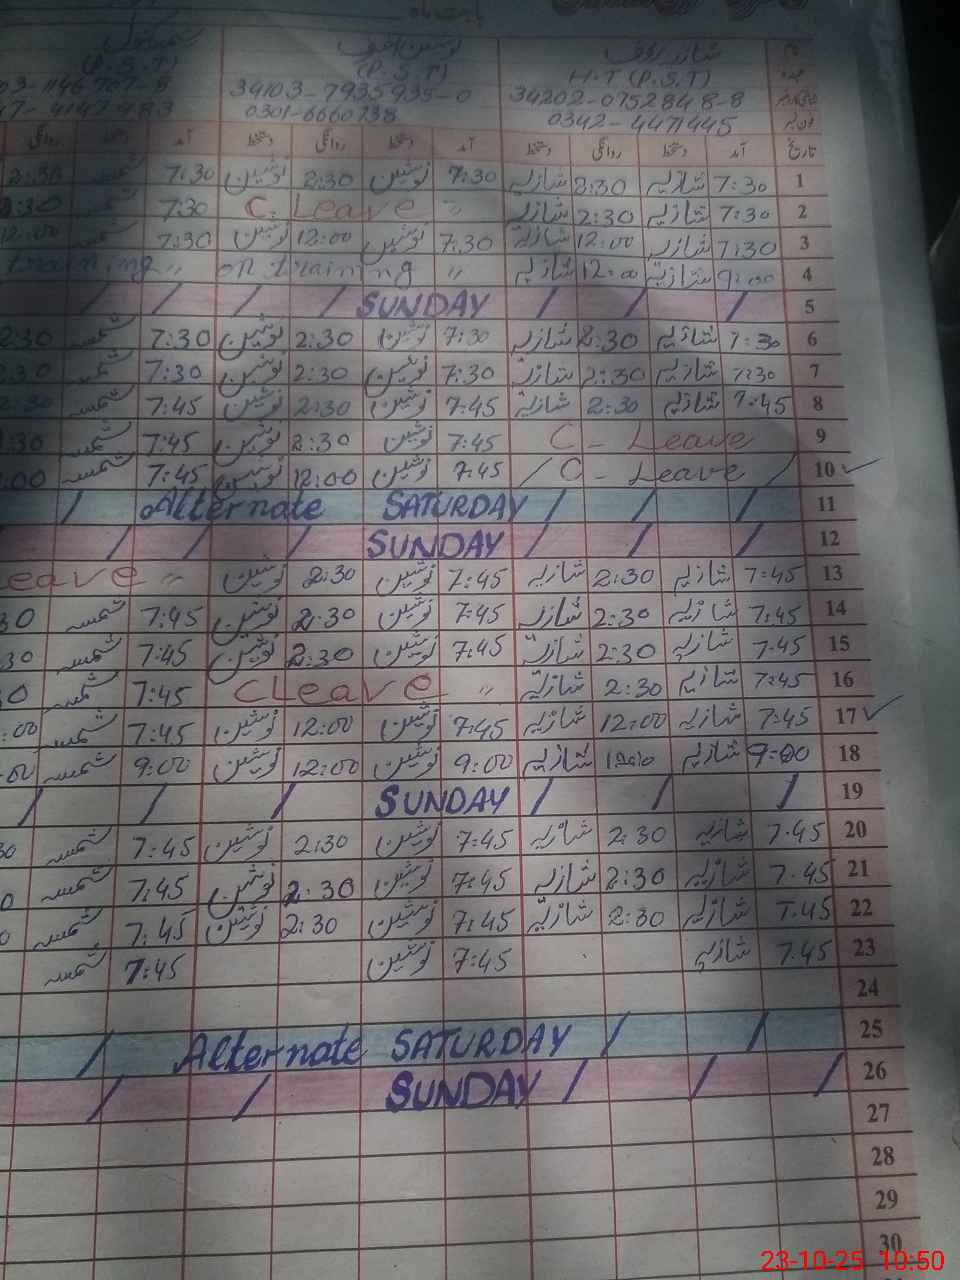 بابت ماہ
شازیہ رؤف نوشین اشرف
عہدہ H.T (P.S.T) (P.S.T) (P.S.T)
34202-0752848-8 34103-7935935-0 03-1146707-8
0342-4471445 0301-6660738 47-4147483
تاریخ آمد دستخط روانگی دستخط آمد دستخط روانگی دستخط آمد دستخط روانگی
1 7:30 شازیہ 2:30 شازیہ 7:30 نوشین 2:30 نوشین 7:30 شمسہ 2:30
2 7:30 شازیہ 2:30 شازیہ " C. Leave 7:30 شمسہ 2:30
3 7:30 شازیہ 12:00 شازیہ 7:30 نوشین 12:00 نوشین 7:30 شمسہ 12:00
4 9:00 شازیہ 12:00 شازیہ " on training " training
5 SUNDAY
6 7:30 شازیہ 2:30 شازیہ 7:30 نوشین 2:30 نوشین 7:30 شمسہ 2:30
7 7:30 شازیہ 2:30 شازیہ 7:30 نوشین 2:30 نوشین 7:30 شمسہ 2:30
8 7:45 شازیہ 2:30 شازیہ 7:45 نوشین 2:30 نوشین 7:45 شمسہ 2:30
9 C - Leave 7:45 نوشین 2:30 نوشین 7:45 شمسہ :30
10 C - Leave 7:45 نوشین 12:00 نوشین 7:45 شمسہ :00
11 Alternate SATURDAY
12 SUNDAY
13 7:45 شازیہ 2:30 شازیہ 7:45 نوشین 2:30 نوشین " eave
14 7:45 شازیہ 2:30 شازیہ 7:45 نوشین 2:30 نوشین 7:45 شمسہ 30
15 7:45 شازیہ 2:30 شازیہ 7:45 نوشین 2:30 نوشین 7:45 شمسہ 30
16 7:45 شازیہ 2:30 شازیہ " CLeave 7:45 شمسہ 0
17 7:45 شازیہ 12:00 شازیہ 7:45 نوشین 12:00 نوشین 7:45 شمسہ :00
18 9:00 شازیہ 12:00 شازیہ 9:00 نوشین 12:00 نوشین 9:00 شمسہ :00
19 SUNDAY
20 7:45 شازیہ 2:30 شازیہ 7:45 نوشین 2:30 نوشین 7:45 شمسہ 30
21 7:45 شازیہ 2:30 شازیہ 7:45 نوشین 2:30 نوشین 7:45 شمسہ 0
22 7:45 شازیہ 2:30 شازیہ 7:45 نوشین 2:30 نوشین 7:45 شمسہ 0
23 7:45 شازیہ 7:45 نوشین 7:45 شمسہ
24
25 Alternate SATURDAY
26 SUNDAY
27
28
29
30
23-10-25 10:50